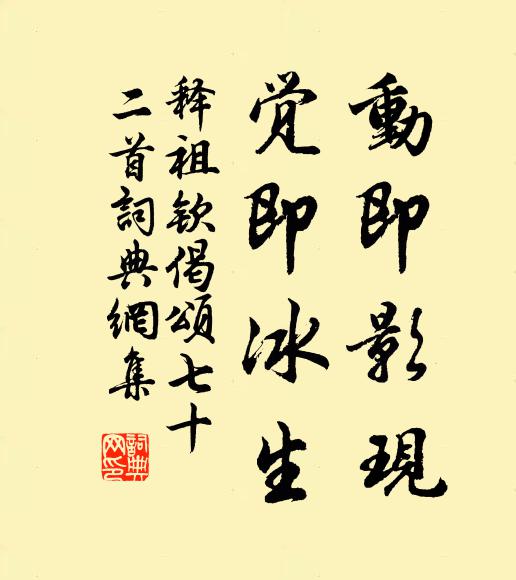 動即影現
覚即冰生
释祖钦偈頌七十
二首詞典網集
詞典
网印